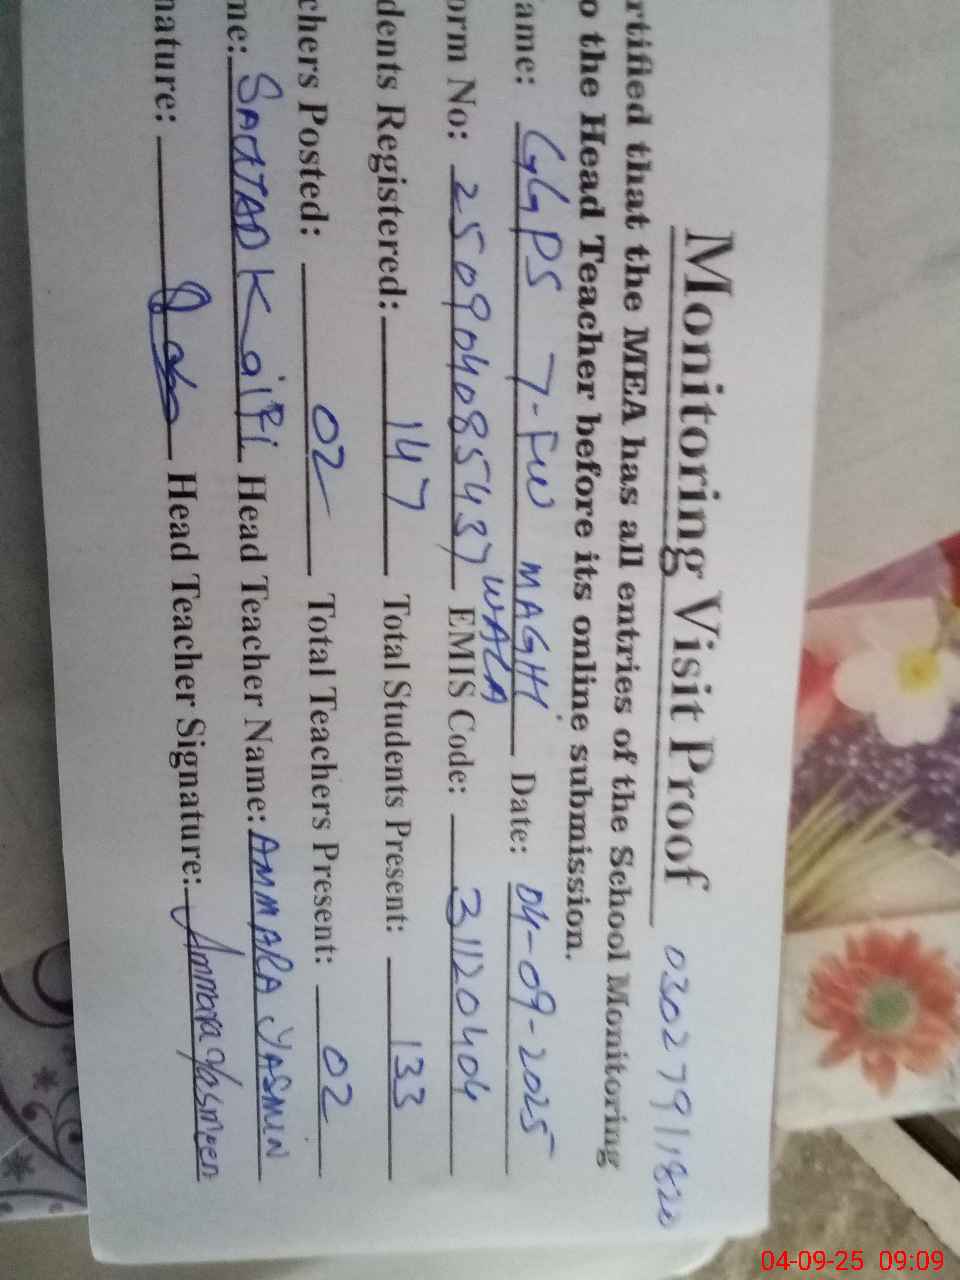 Monitoring Visit Proof 03027911820
rtified that the MEA has all entries of the School Monitoring
o the Head Teacher before its online submission.
ame: GGPS 7-FW MAGHI WALA Date: 04-09-2025
orm No: 250904085437 EMIS Code: 31120404
dents Registered: 147 Total Students Present: 133
chers Posted: 02 Total Teachers Present: 02
me: SAJJAD KAIFI Head Teacher Name: AMMARA YASMIN
nature: Head Teacher Signature: Ammara Yasmeen
04-09-25 09:09